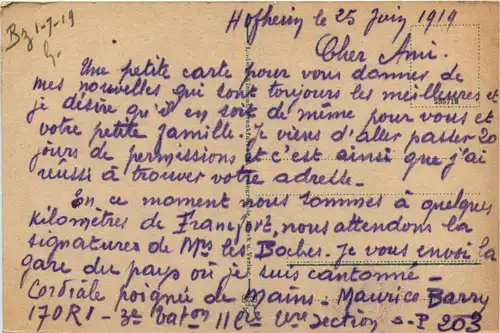 Bz 1-7-19
Hofheim le 25 Juin 1919
Cher Ami.
Une petite carte pour vous donner de
mes nouvelles qui sont toujours les meilleures et
je désire qu'il en soit de même pour vous et
votre petite famille. Je viens d'aller passer 20
jours de permissions et c'est ainsi que j'ai
réussi à trouver votre adresse.
En ce moment nous sommes à quelques
Kilomètres de Francfort, nous attendons la
signatures de Mrs les Boches. Je vous envoi la
gare du pays où je suis cantonné -
Cordiale poignée de Mains - Maurice Barry
170RI - 3e Baton 11ère 1ère section S-P 203